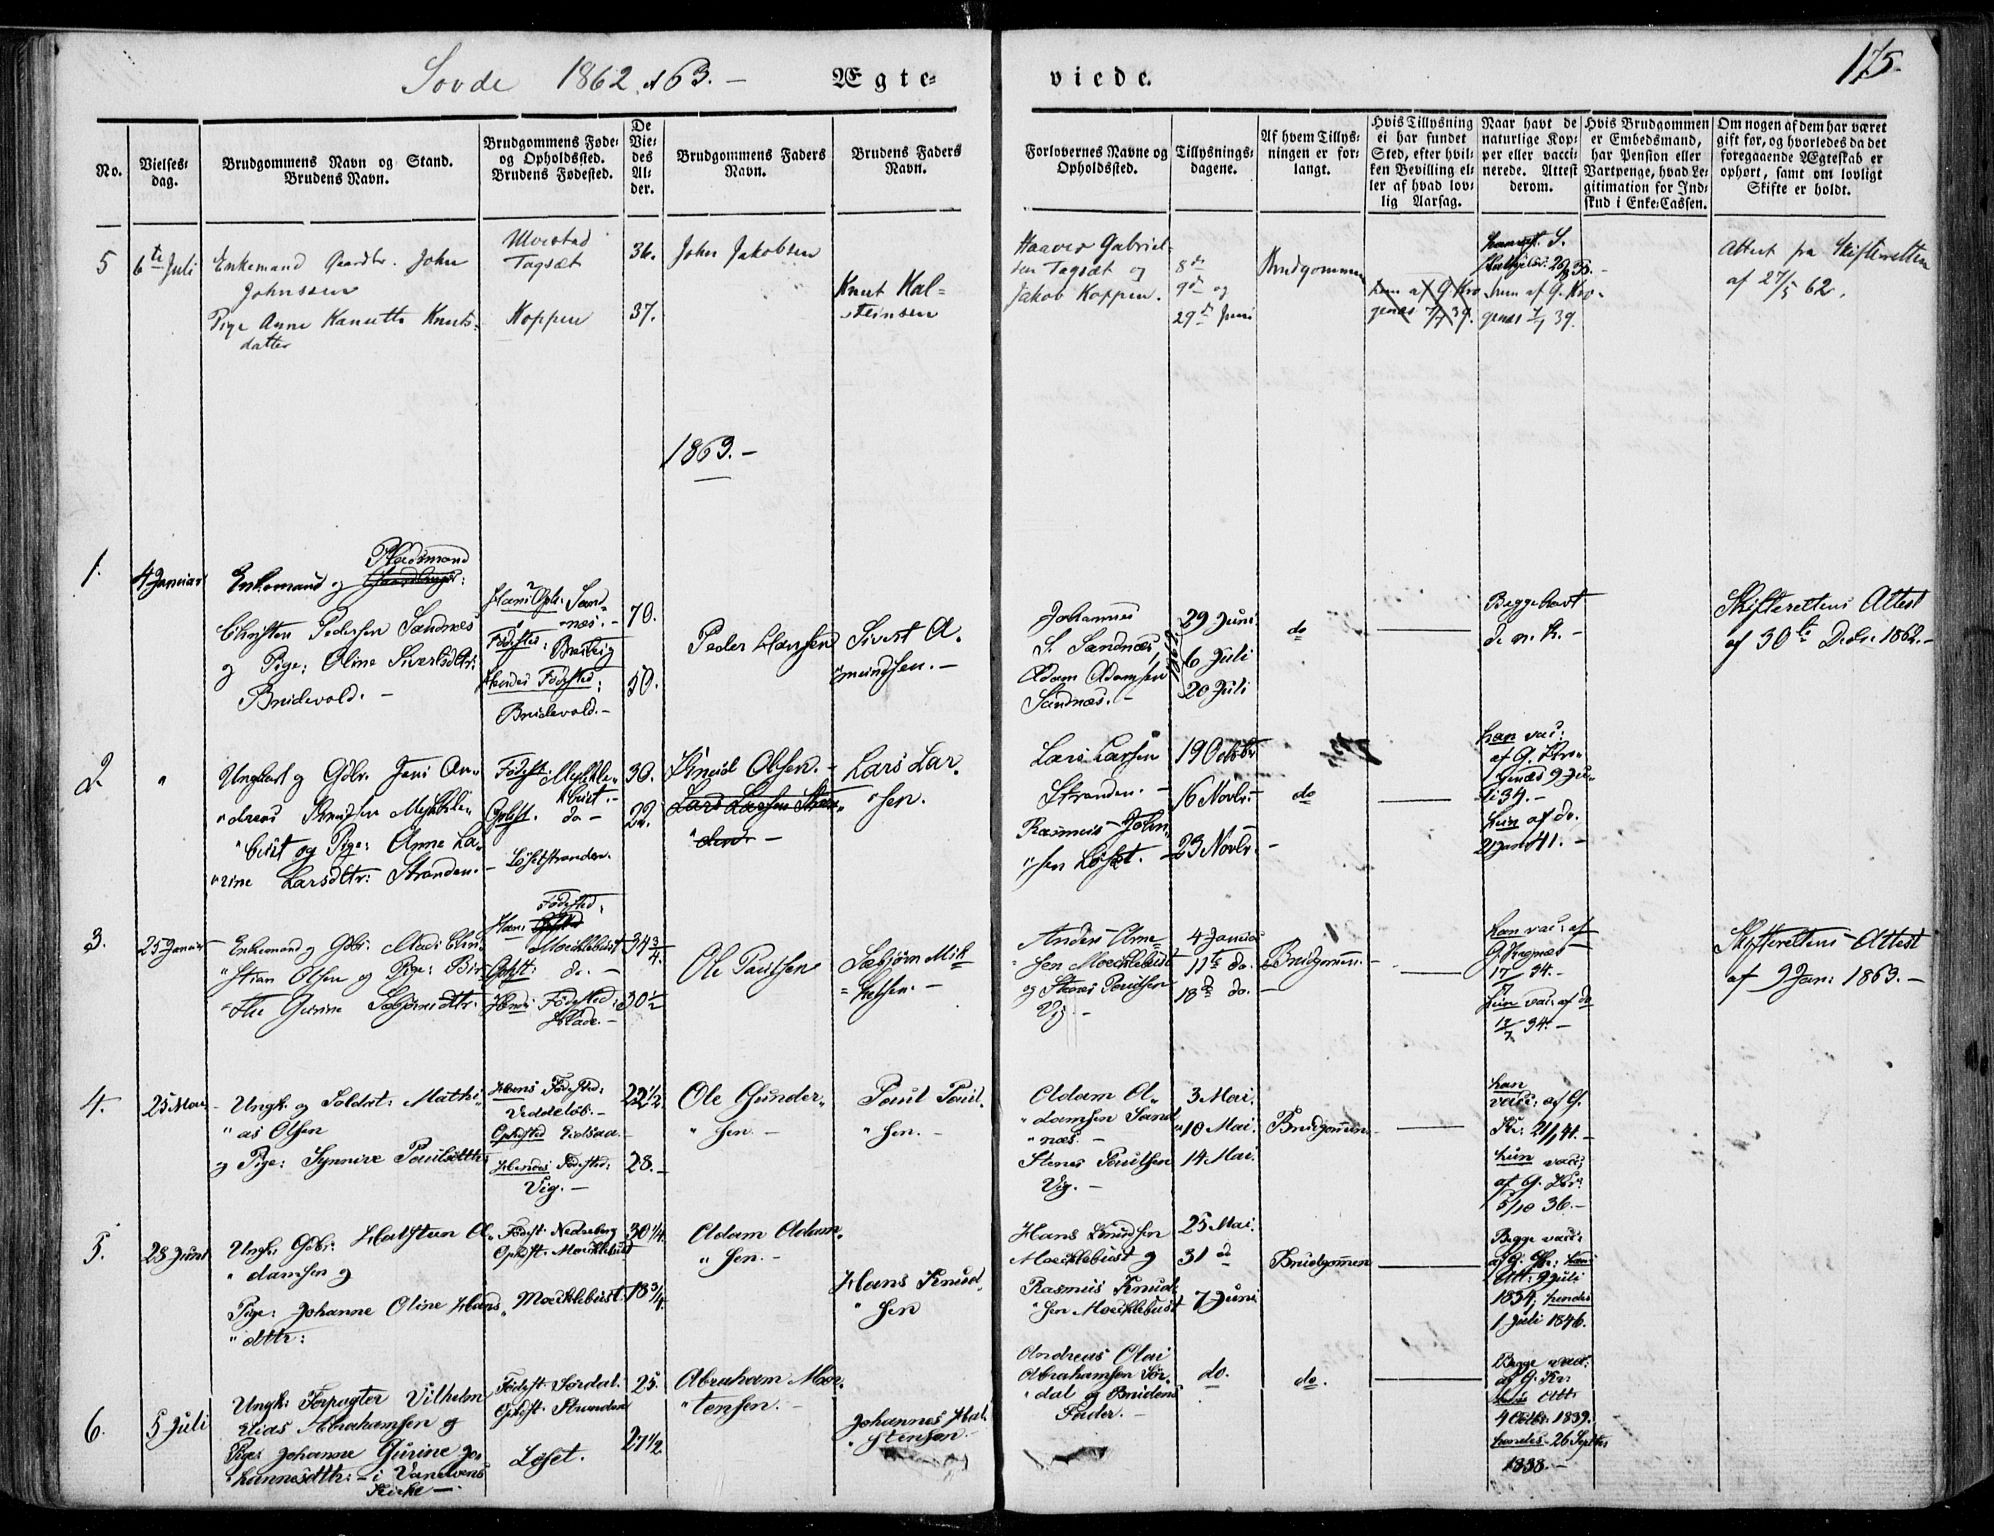 Sovde 1862 & 63. – Ægte-
viede.
175.
No.
Vielses-
dag.
Brudgommens Navn og Stand.
Brudens Navn.
Brudgommens Føde-
og Opholdssted.
Brudens Fødested.
De
Vie-
des
Al-
der.
Brudgommens Faders
Navn.
Brudens Faders
Navn.
Forlovernes Navne og
Opholdssted.
Tillysnings-
dagene.
Af hvem Tillys-
ningen er for-
langt.
Hvis Tillysning
ei har fundet
Sted, efter hvil-
ken Bevilling el-
ler af hvad lov-
lig Aarsag.
Naar havt de
naturlige Kop-
per eller vacci-
nerede. Attest
derom.
Hvis Brudgommen
er Embedsmand,
har Pension eller
Vartpenge, hvad Le-
gitimation for Ind-
skud i Enke-Cassen.
Om nogen af dem har været
gift før, og hvorledes da det
foregaaende Ægteskab er
ophørt, samt om lovligt
Skifte er holdt.
5
6te Juli
Enkemand Gaardbr. John
Johnssen
Pige Anne Kanutte Knuts-
datter
Ulvestad
Tagsæt
Koppen
36.
37.
John Jakobsen
Knut Hal-
steinsen
Haaver Gabriel-
sen Tagsæt og
Jakob Koppen.
8de
9de og
29de Juni
Brudgommen
hun af G. Kro
genæs 7/7 39.
hun af G. Kro-
genæs 7/7 39.
Attest fra Skifteretten
af 27/5 62.
1863. –
1.
4 Januar
Pladsmand
Enkemand og Gaardbruger:
Christen Pedersen Sandnæs
og Pige: Oline Sivertsdtr:
Breidevold. –
Hans Oph: Sand-
næs. –
Fødested: Breivig
Hendes Fødested:
Breidevold. –
70.
50.
Peder Hansen
Sivert A.
mundsen. –
Johannes
S. Sandnæs,
Adam Adamsen
Sandnæs. –
1862
29 Juni
6 Juli
20 Juli
do
Begge havt
d. n. K. –
Skifterettens Attest
af 30te Decbr. 1862. –
2
"
Ungkarl og Gdbr. Jens An-
"dreas Knudsen Myklle-
"bust og Pige: Anne La-
"rine Larsdtr: Stranden. –
Fødest: Mykkle-
bust. –
Ophst. do –
Løsetstranden.
30.
22.
Knud Olsen. –
Lars Larsen Stran-
"den –
Lars Lar-
"sen.
Lars Larsen
Stranden. –
Rasmus John-
"sen Løset. –
19 Octobr
16 Novbr. –
23 Novbr. –
do
han vac:
af G. Kro-
genæs 9 Ju-
li 34. –
hun af do.
2 Janr 41. –
3.
25 Januar
Enkemand og Gdbr: Mads Chri-
"stian Olsen og Pige: Bir-
"the Gurine Sæbjørnsdtr.
Fødested:
Hans Ophst
Moeklebust
Ophst: do. –
Hendes Fødested:
Hade. –
34 3/4
30 1/2
Ole Paulsen
Sæbjørn Mik-
"kelsen. –
Anders Arne-
"sen Moecklebust
og Stenes Poulsen
Vig. –
4 Januar
11te do.
18de do. –
Brudgommen. –
han vac: af
G. Kragnæs
17/7 34. –
hun vac: af do
17/7 34. –
Skifterettens Attest
af 9 Jan: 1863. –
4.
25 Mai
Ungk. og Soldat: Mathi-
"as Olsen
og Pige: Synnive Poulsdtr:
Hans Fødested:
Veddelos. –
Ophsted Eidsaa. –
Hendes Fødested:
Vig. –
22 1/2
28. –
Ole Gunder-
"sen. –
Poul Poul-
"sen. –
Adam A-
"damsen Sand
"næs. –
Stenes Poulsen
Vig. –
3 Mai.
10 Mai.
14 Mai.
Brudgommen
han
vacc: af G.
Kr: 21/1 41. –
hun vacc:
af G. Kr:
5/10 36. –
5.
28 Juni
Ungk. Gdbr: Halsten A-
"damsen og
Pige: Johanne Oline Hans
"dttr:
Fødest. Nedreberg
Ophst. Moecklebust
Moecklebust.
30 1/4.
18 3/4
Adam Adam-
"sen. –
Hans Knud-
"sen
Hans Knudsen
Moecklebust og
Rasmus Knud-
"sen Moecklebust
25 Mai.
31 d
7 Juni
Brudgommen
Begge vacc:
af G. Kr: hans
Att: 9 Juli
1834, hendes
1 Juli 1846.
6.
5 Juli
Ungk: Forpagter Vilhelm
Elias Abrahamsen og
Pige: Johanne Gurine Jo-
"hannesdtr: – i Vanelvens
Kirke –
Fødest. Sørdal.
Ophst. Stranden
Løset.
25.
27 1/2
Abraham Mor-
"tensen. –
Johannes Hal-
"stensen
Andreas Olai
Abrahamsen Sør-
"dal og Brudens
Fader. –
do.
do.
Begge vac:
af G. Kr:
hans Att:
4 Octbr: 1839.
hendes 26 Septbr
1838. –